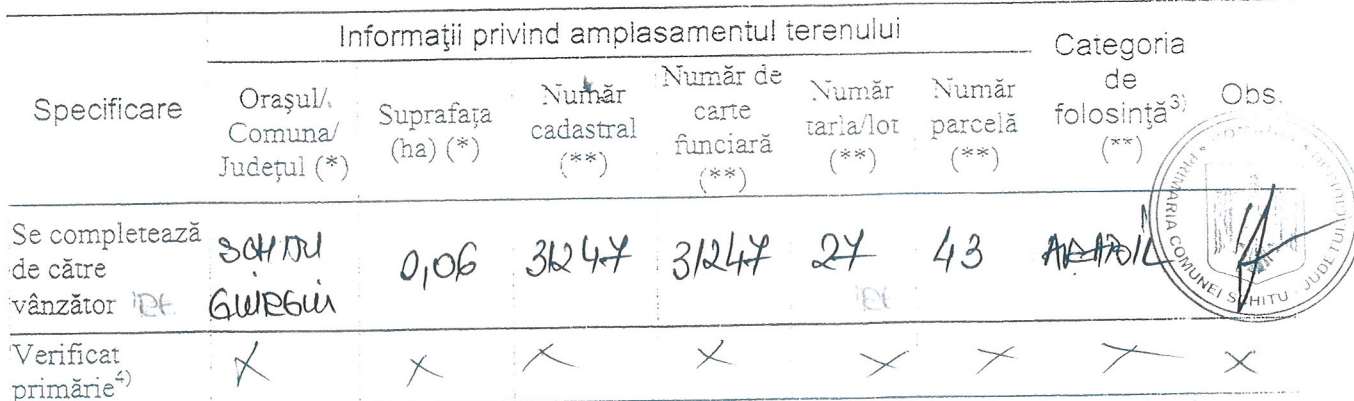 Informaţii privind amplasamentul terenului
Specificare
Oraşul/
Comuna/
Judeţul (*)
Suprafaţa
(ha) (*)
Număr
cadastral
(**)
Număr de
carte
funciară
(**)
Număr
tarla/lot
(**)
Număr
parcelă
(**)
Categoria
de
folosinţă3)
(**)
Obs.
Se completează
de către
vânzător
SCHITU
GIURGIU
0,06
31247
31247
27
43
ARABIL
PRIMARIA COMUNEI SCHITU
Verificat
primărie4)
X
X
X
X
X
X
X
X